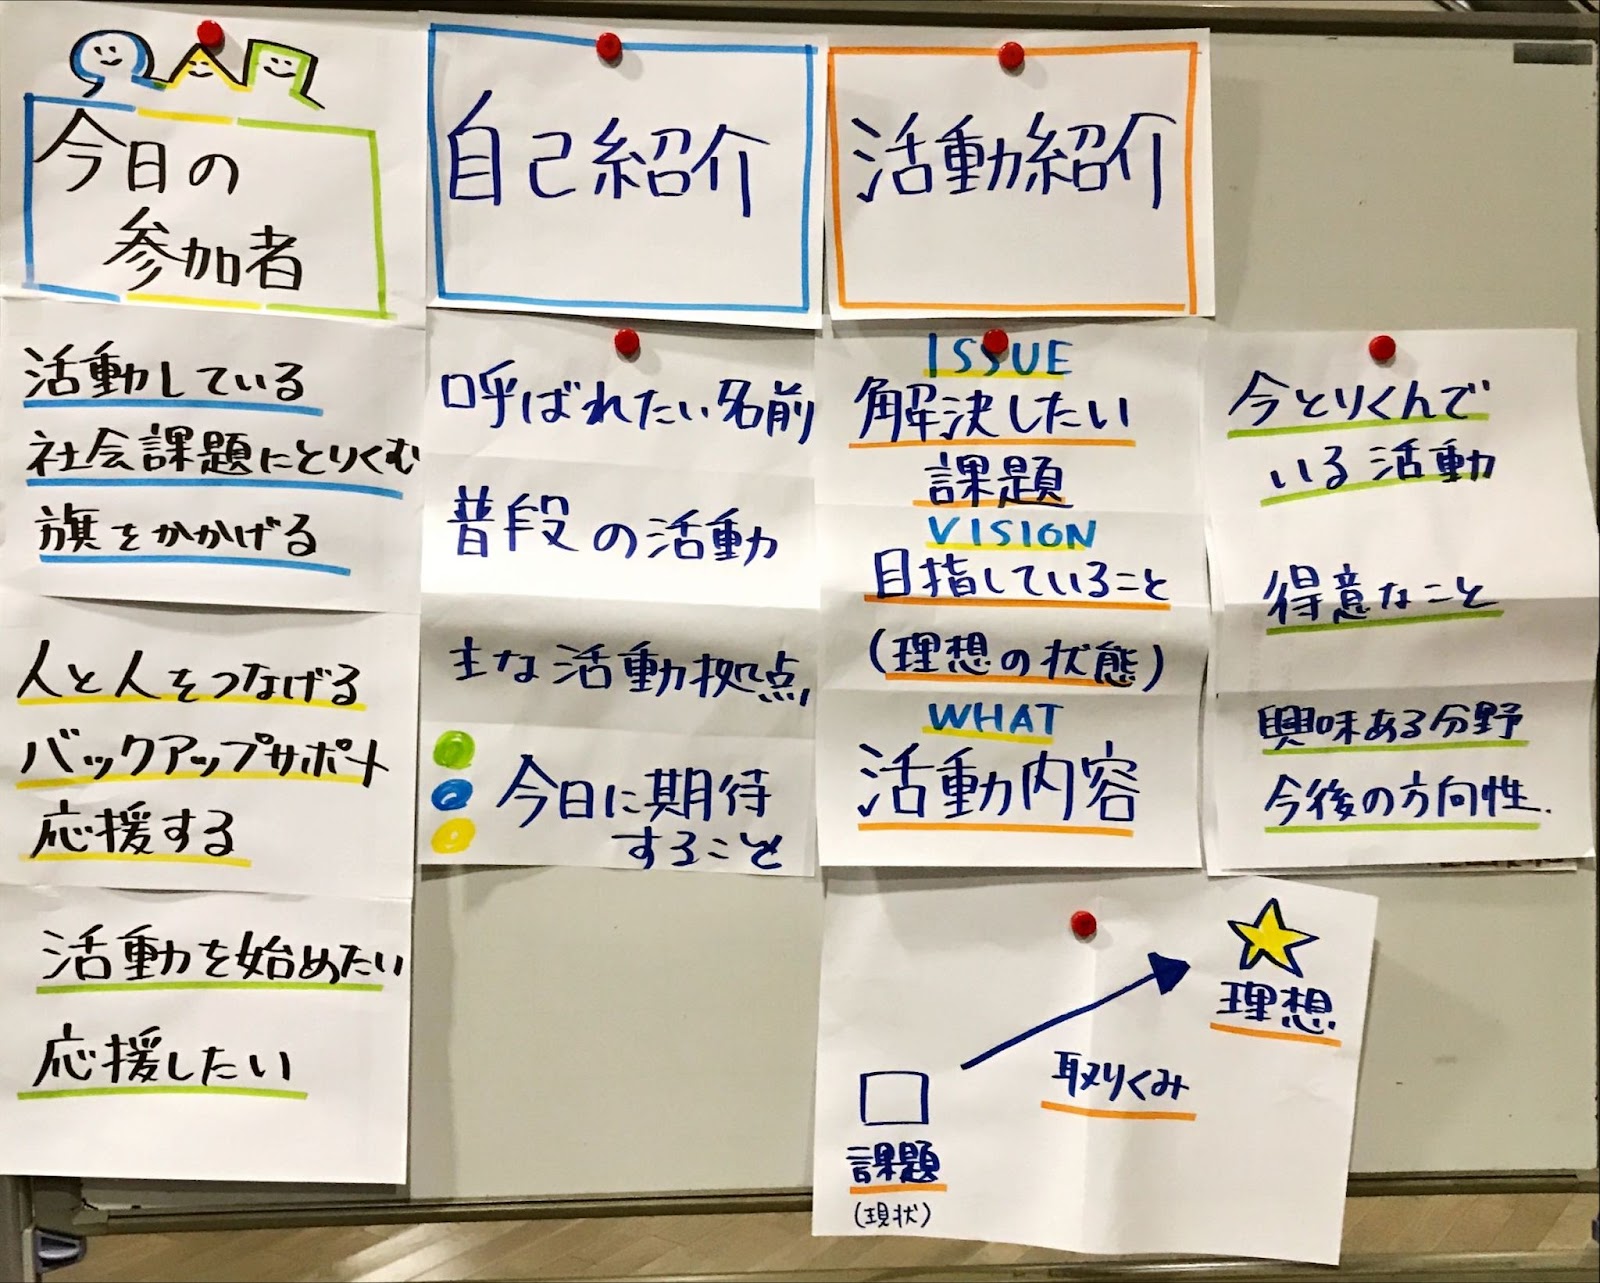 今日の
参加者
活動している
社会課題にとりくむ
旗をかかげる
人と人をつなげる
バックアップサポート
応援する
活動を始めたい
応援したい
自己紹介
呼ばれたい名前
普段の活動
主な活動拠点
今日に期待
すること
活動紹介
ISSUE
解決したい
課題
VISION
目指していること
(理想の状態)
WHAT
活動内容
今とりくんで
いる活動
得意なこと
興味ある分野
今後の方向性.
理想
取りくみ
課題
(現状)